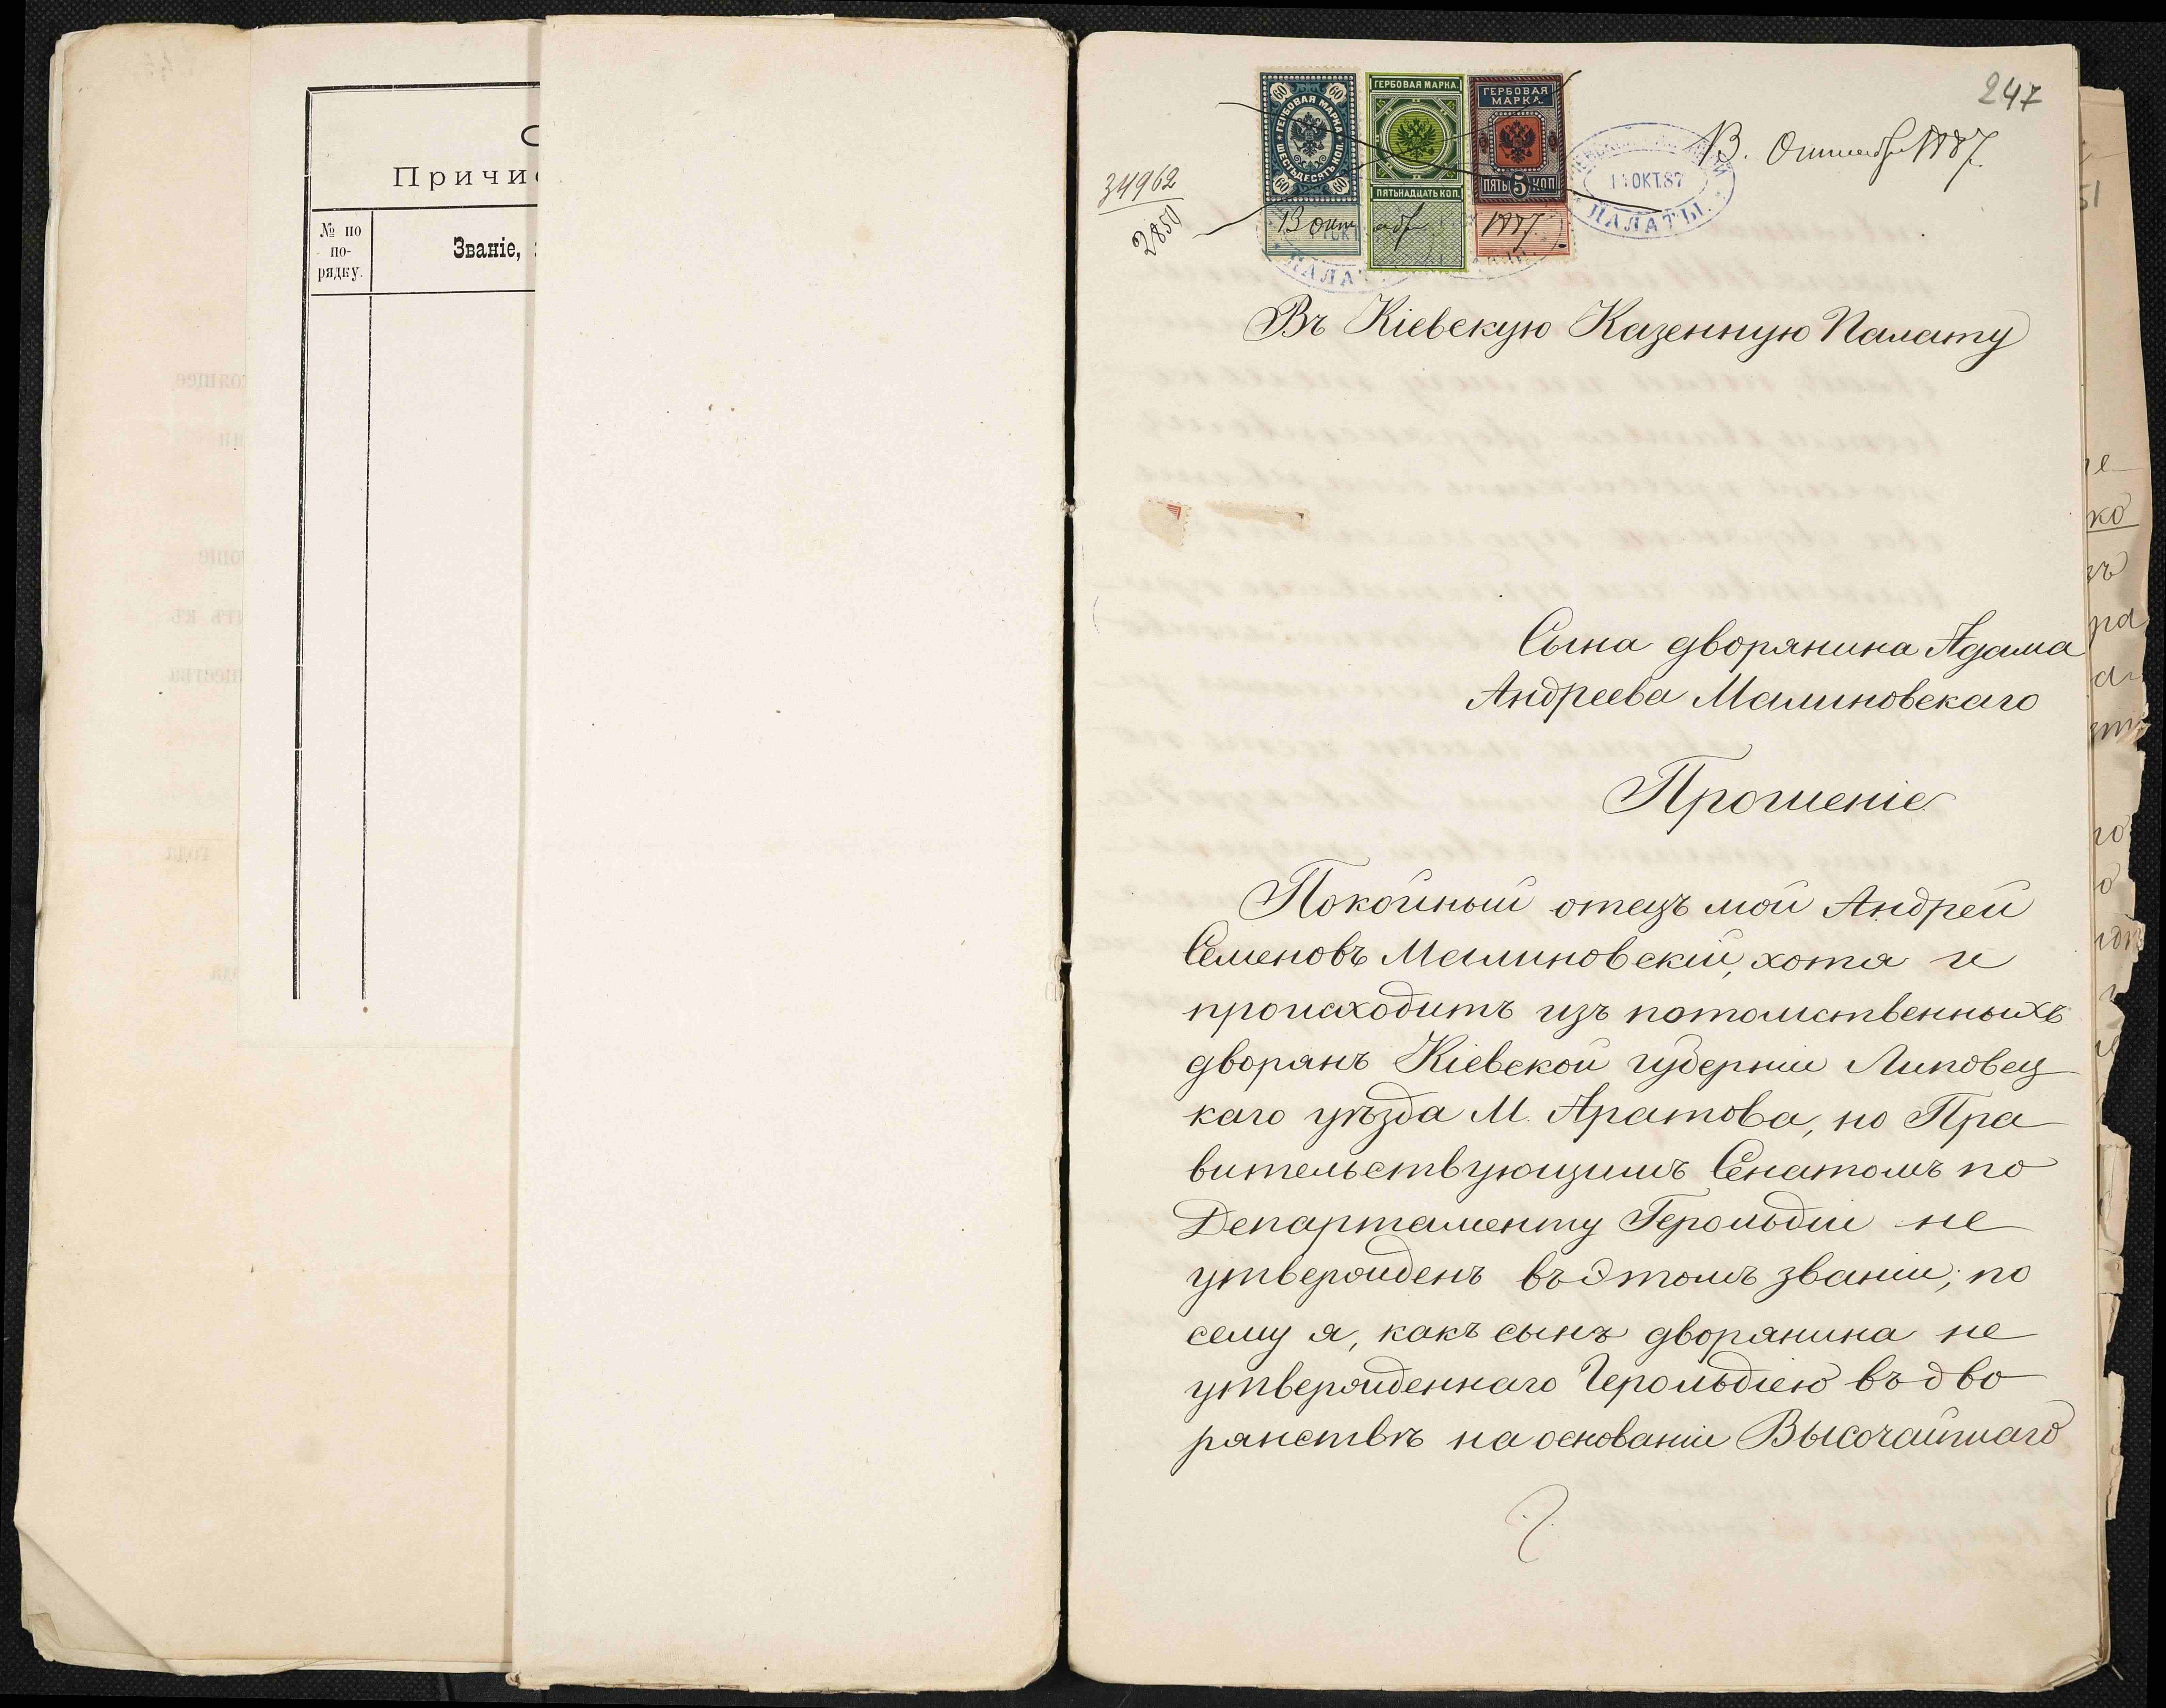 Причи
№ по
по-
рядку.
Званіе,
247
13. Октября 1887
34962
2850
60 60
ГЕРБОВАЯ МАРКА
ШЕСТЬДЕСЯТЪ КОП.
60 60
ГЕРБОВАЯ МАРКА.
ПЯТЬНАДЦАТЬ КОП.
ГЕРБОВАЯ
МАРКА.
ПЯТЬ 5 КОП
13 окт 1887
ОКТ.87
ПАЛАТЫ
Въ Кіевскую Казенную Палату
Сына дворянина Адама
Андреева Малиновскаго
Прошеніе
Покойный отецъ мой Андрей
Семеновъ Малиновскій, хотя и
происходитъ изъ потомственныхъ
дворянъ Кіевской губерніи Липовец
каго уѣзда М. Аратова, но Пра
вительствующимъ Сенатомъ по
Департаменту Герольдіи не
утвержденъ въ этомъ званіи; по
сему я, какъ сынъ дворянина не
утвержденнаго Герольдіею въ дво
рянствѣ на основаніи Высочайшаго